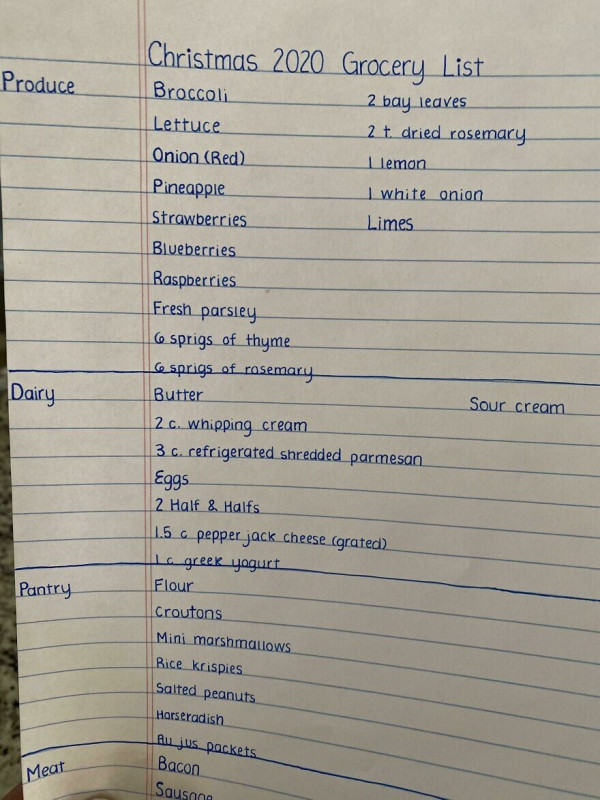 Christmas 2020 Grocery List
Produce
Broccoli 2 bay leaves
Lettuce 2 t. dried rosemary
Onion (Red) 1 lemon
Pineapple 1 white onion
Strawberries Limes
Blueberries
Raspberries
Fresh parsley
6 sprigs of thyme
6 sprigs of rosemary
Dairy Butter Sour cream
2 c. whipping cream
3 c. refrigerated shredded parmesan
Eggs
2 Half & Halfs
1.5 c pepper jack cheese (grated)
1 c greek yogurt
Pantry Flour
Croutons
Mini marshmallows
Rice krispies
Salted peanuts
Horseradish
Au jus packets
Meat Bacon
Sausage